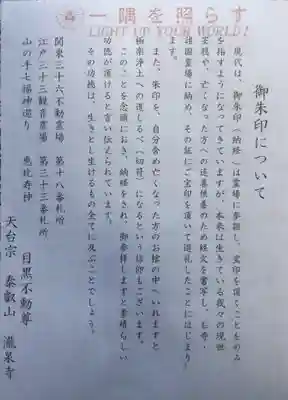 一隅を照らす
LIGHT UP YOUR WORLD!
御朱印について
現代は、御朱印(納経)は霊場に参詣し、宝印を頂くことをのみ
を指すようになってきていますが、本来は生きている我々の現世
安穏や、亡くなった方への追善供養のため経文を書写し、七寺・
諸国霊場に納め、その証にご宝印を頂いて巡礼したことにはじまり
ます。
また、朱印を、自分含め亡くなった方のお棺の中へいれますと
極楽浄土への道しるべへ(切符)になるという信仰もございます。
このことを念頭におき、納経をされ、御参拝しますと素晴らしい
功徳が頂けると言い伝えられています。
その功徳は、生きとし生けるもの全てに及ぶことでしょう。
関東三十六不動霊場 第十八番札所
江戸三十三観音霊場 第三十三番札所
山の手七福神巡り 恵比寿神
目黒不動尊
天台宗 泰叡山 瀧泉寺